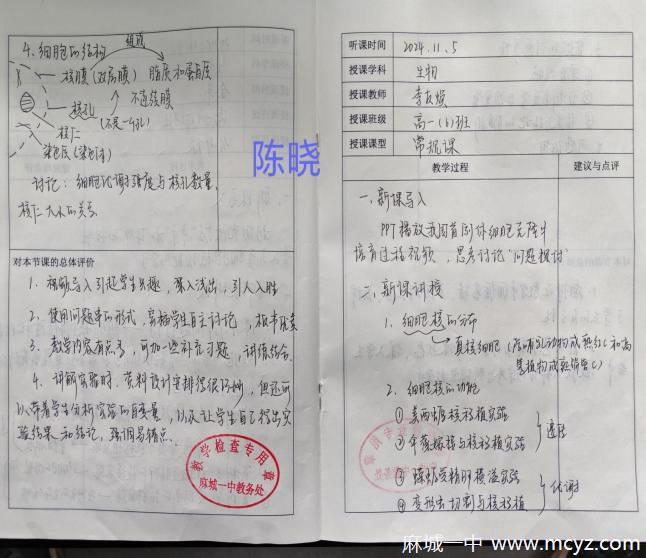 4. 细胞的结构
组成
核膜 (双层膜) 脂质和蛋白质
不连续膜
核孔
(不是一个孔)
核仁
染色质 (染色体)
讨论: 细胞代谢强度与核孔数量,
核仁大小的关系.
陈晓
对本节课的总体评价
1. 视频导入引起学生兴趣, 深入浅出, 引人入胜
2. 使用问题串的形式, 穿插学生自主讨论,
3. 教学内容有点多, 可加一些补充习题, 讲练结合.
4. 讲解实验时, 资料设计安排得很巧妙, 但还可
以带着学生分析实验的自变量, 以及让学生自己得出实
验结果和结论, 强调易错点.
教学检查专用章
麻城一中教务处
听课时间 2024.11.5
授课学科 生物
授课教师 李
授课班级 高一(6)班
授课课型 常规课
教学过程 建议与点评
一. 新课导入
PPT播放我国首例体细胞克隆牛
培育过程视频, 思考讨论"问题探讨"
二. 新课讲授
1. 细胞核的分布
真核细胞 (除哺乳动物成熟红C和高
等植物成熟筛管C)
2. 细胞核的功能
① 美西螈核移植实验
② 伞藻嫁接与核移植实验
遗传
③ 蝾螈受精卵横缢实验
④ 变形虫切割与核移植
代谢
麻城一中 www.mcyz.com